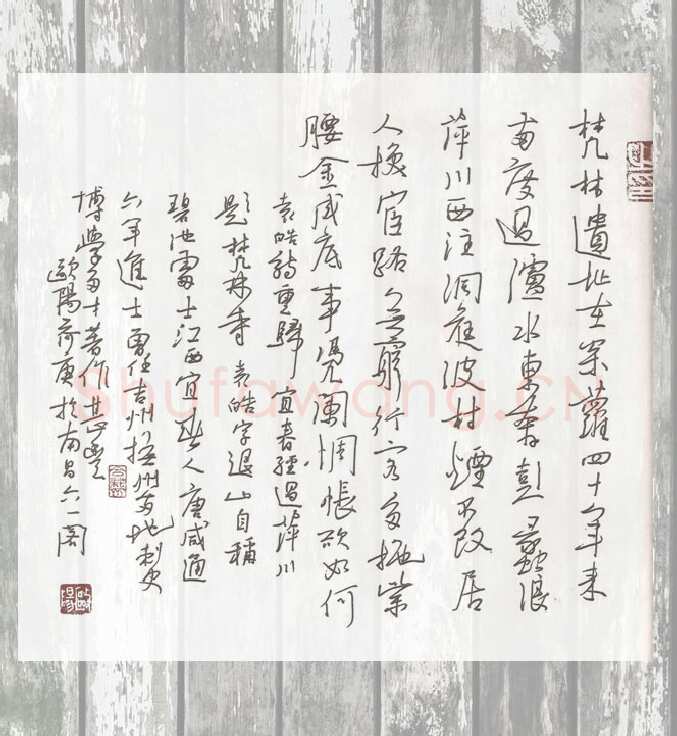 梵林遺址在松蘿四十年来
兩度過瀘水東奔彭蠡浪
萍川西注洞庭波村煙不改居
人換官路無窮行客多拖紫
腰金成底事凭闌惆悵欲如何
袁皓詩重歸宜春經過萍川
題梵林寺 袁皓字退山自稱
碧池處士江西宜春人唐咸通
六年進士曾任吉州撫州等地刺史
博學多才著作甚豐
歐陽荷庚於南昌六一閣
Shufawang.CN